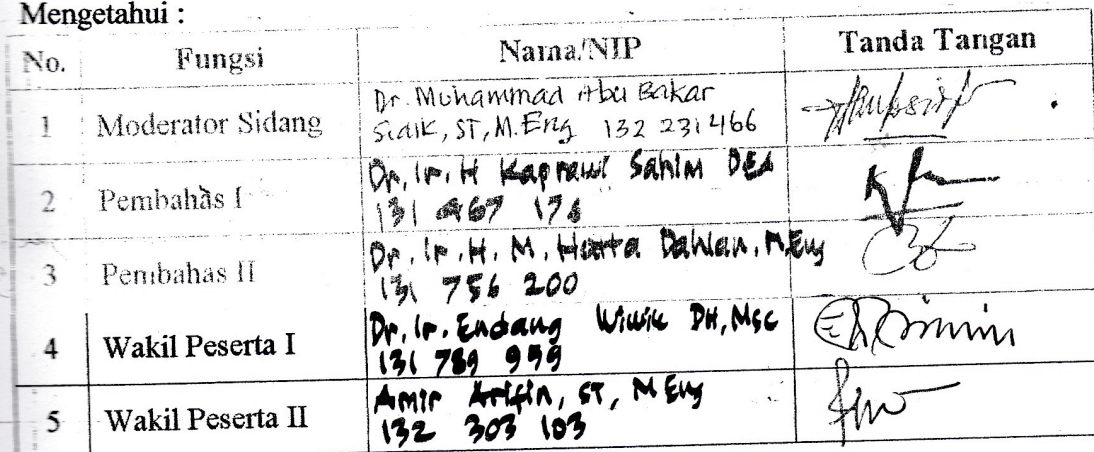 Mengetahui :
No. Fungsi Nama/NIP Tanda Tangan
1 Moderator Sidang Dr. Muhammad Abu Bakar
Sidik, ST, M.Eng 132 231 466
2 Pembahas I Dr. Ir. H Kaprawi Sahim DEA
131 467 176
3 Pembahas II Dr. Ir. H. M. Hatta Dahlan, M.Eng
131 756 200
4 Wakil Peserta I Dr. Ir. Endang Wiwik DH, MSc
131 789 999
5 Wakil Peserta II Amir Arifin, ST, M Eng
132 303 103